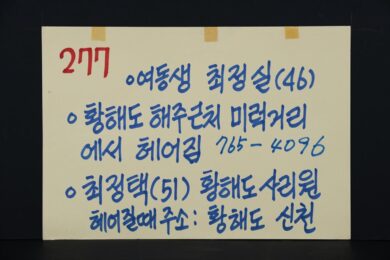 277
○여동생 최정실(46)
○황해도 해주근처 미력거리
에서 헤어짐 765-4096
○최정택(51) 황해도사리원
헤어질때주소: 황해도 신천